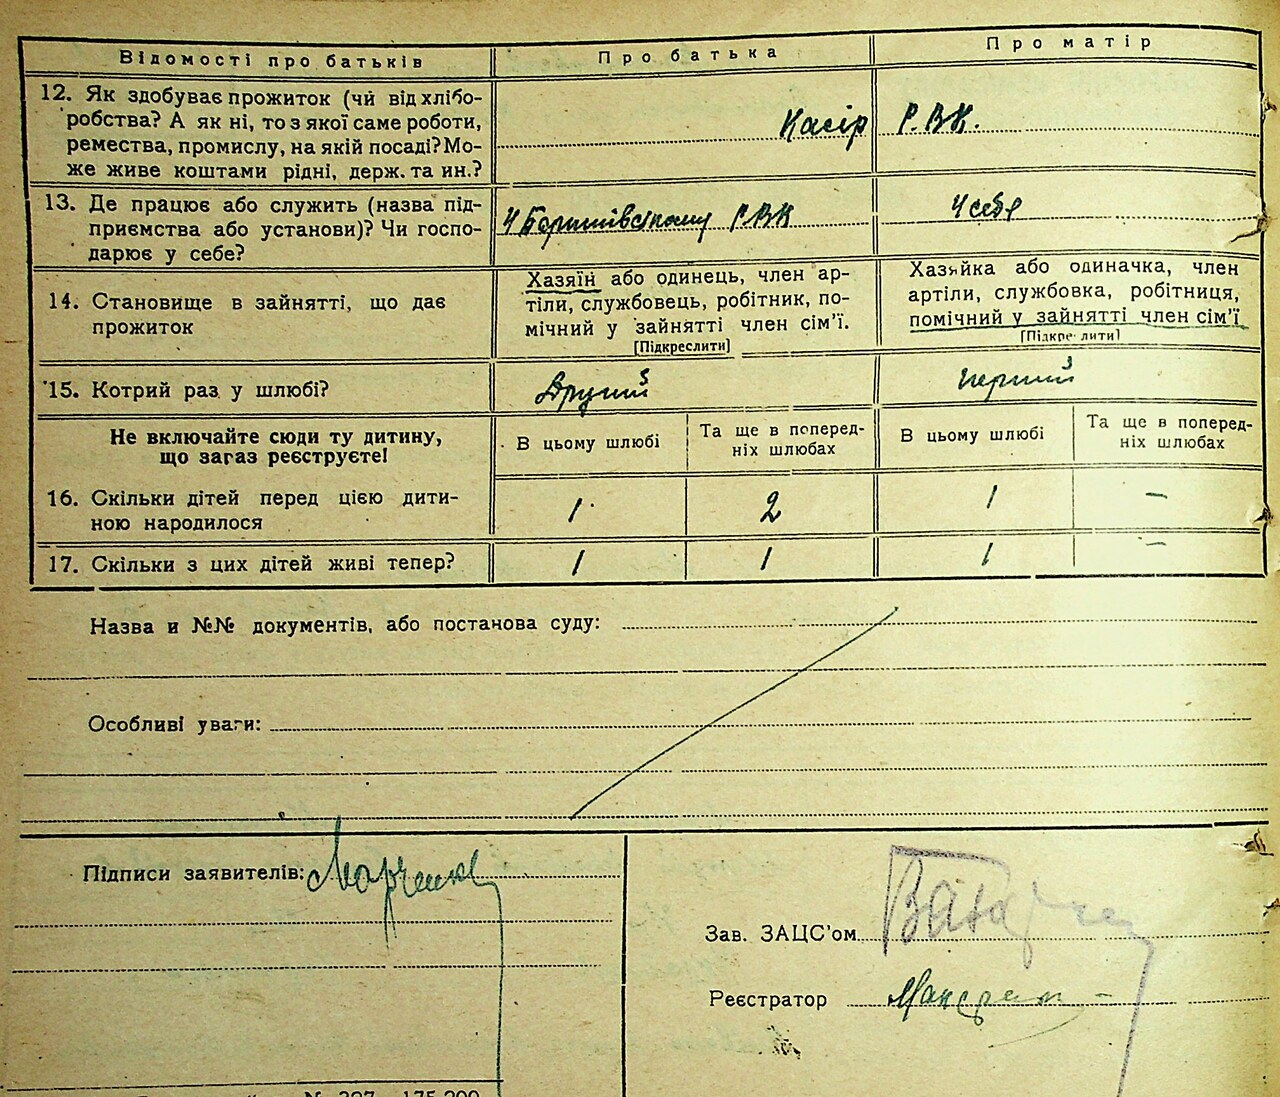 Відомості про батьків Про батька Про матір
12. Як здобуває прожиток (чи від хлібо-
робства? А як ні, то з якої саме роботи,
ремества, промислу, на якій посаді? Мо-
же живе коштами рідні, держ. та ин.?
Касір Р.В.К.
13. Де працює або служить (назва під-
приємства або установи)? Чи госпо-
дарює у себе?
РВК
У себе
14. Становище в зайнятті, що дає
прожиток
Хазяїн або одинець, член ар-
тіли, службовець, робітник, по-
мічний у зайнятті член сім'ї.
[Підкреслити]
Хазяйка або одиначка, член
артіли, службовка, робітниця,
помічний у зайнятті член сім'ї
[Підкреслити]
15. Котрий раз у шлюбі? Другий Перший
Не включайте сюди ту дитину,
що загаз реєструєте!
В цьому шлюбі
Та ще в поперед-
ніх шлюбах
В цьому шлюбі
Та ще в поперед-
ніх шлюбах
16. Скільки дітей перед цією дити-
ною народилося
1 2 1 —
17. Скільки з цих дітей живі тепер? 1 1 1 —
Назва и №№ документів, або постанова суду:
Особливі уваги:
Підписи заявителів:
Зав. ЗАЦС'ом
Реєстратор
№ 327 175.200